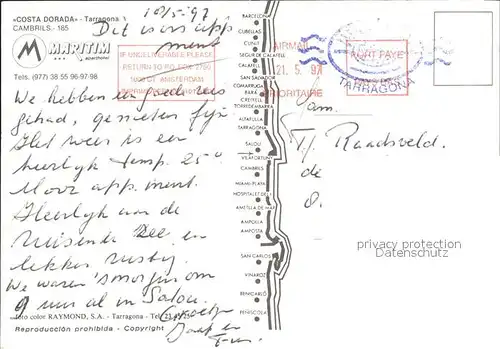 «COSTA DORADA» - Tarragona
CAMBRILS.- 185
10/5-'97
Dit is ons app
ment
MARITIM
aparthotel
Tels. (977) 38 55 96-97-98
IF UNDELIVERABLE PLEASE
RETURN TO P.O. BOX
AMSTERDAM
We hebben een goede reis
gehad, genieten fijn
Het weer is een
heerlijk temp. 25°
Voor app.ment.
Heerlijk aan de
ruisende zee en
lekker rustig.
We waren 's morgens om
9 uur al in Salou.
Groetjes
Jaap en
foto color RAYMOND, S.A. - Tarragona - Tel.
Reproducción prohibida - Copyright
BARCELONA
CUBELLAS
CUNIT
SEGUR DE CALAFELL
CALAFELL
SAN SALVADOR
COMARRUGA
BARA
CREIXELL
TORREDEMBARRA
ALTAFULLA
TARRAGONA
SALOU
VILAFORTUNY
CAMBRILS
MIAMI PLAYA
HOSPITALET DE I.
AMETLLA DE MAR
AMPOLLA
AMPOSTA
SAN CARLOS
VINAROZ
BENICARLÓ
PEÑISCOLA
AIRMAIL
21. 5. 97
PRIORITAIRE
PORT PAYÉ
TARRAGONA
Fam.
T/J Raadsveld.
de
privacy protection
Datenschutz